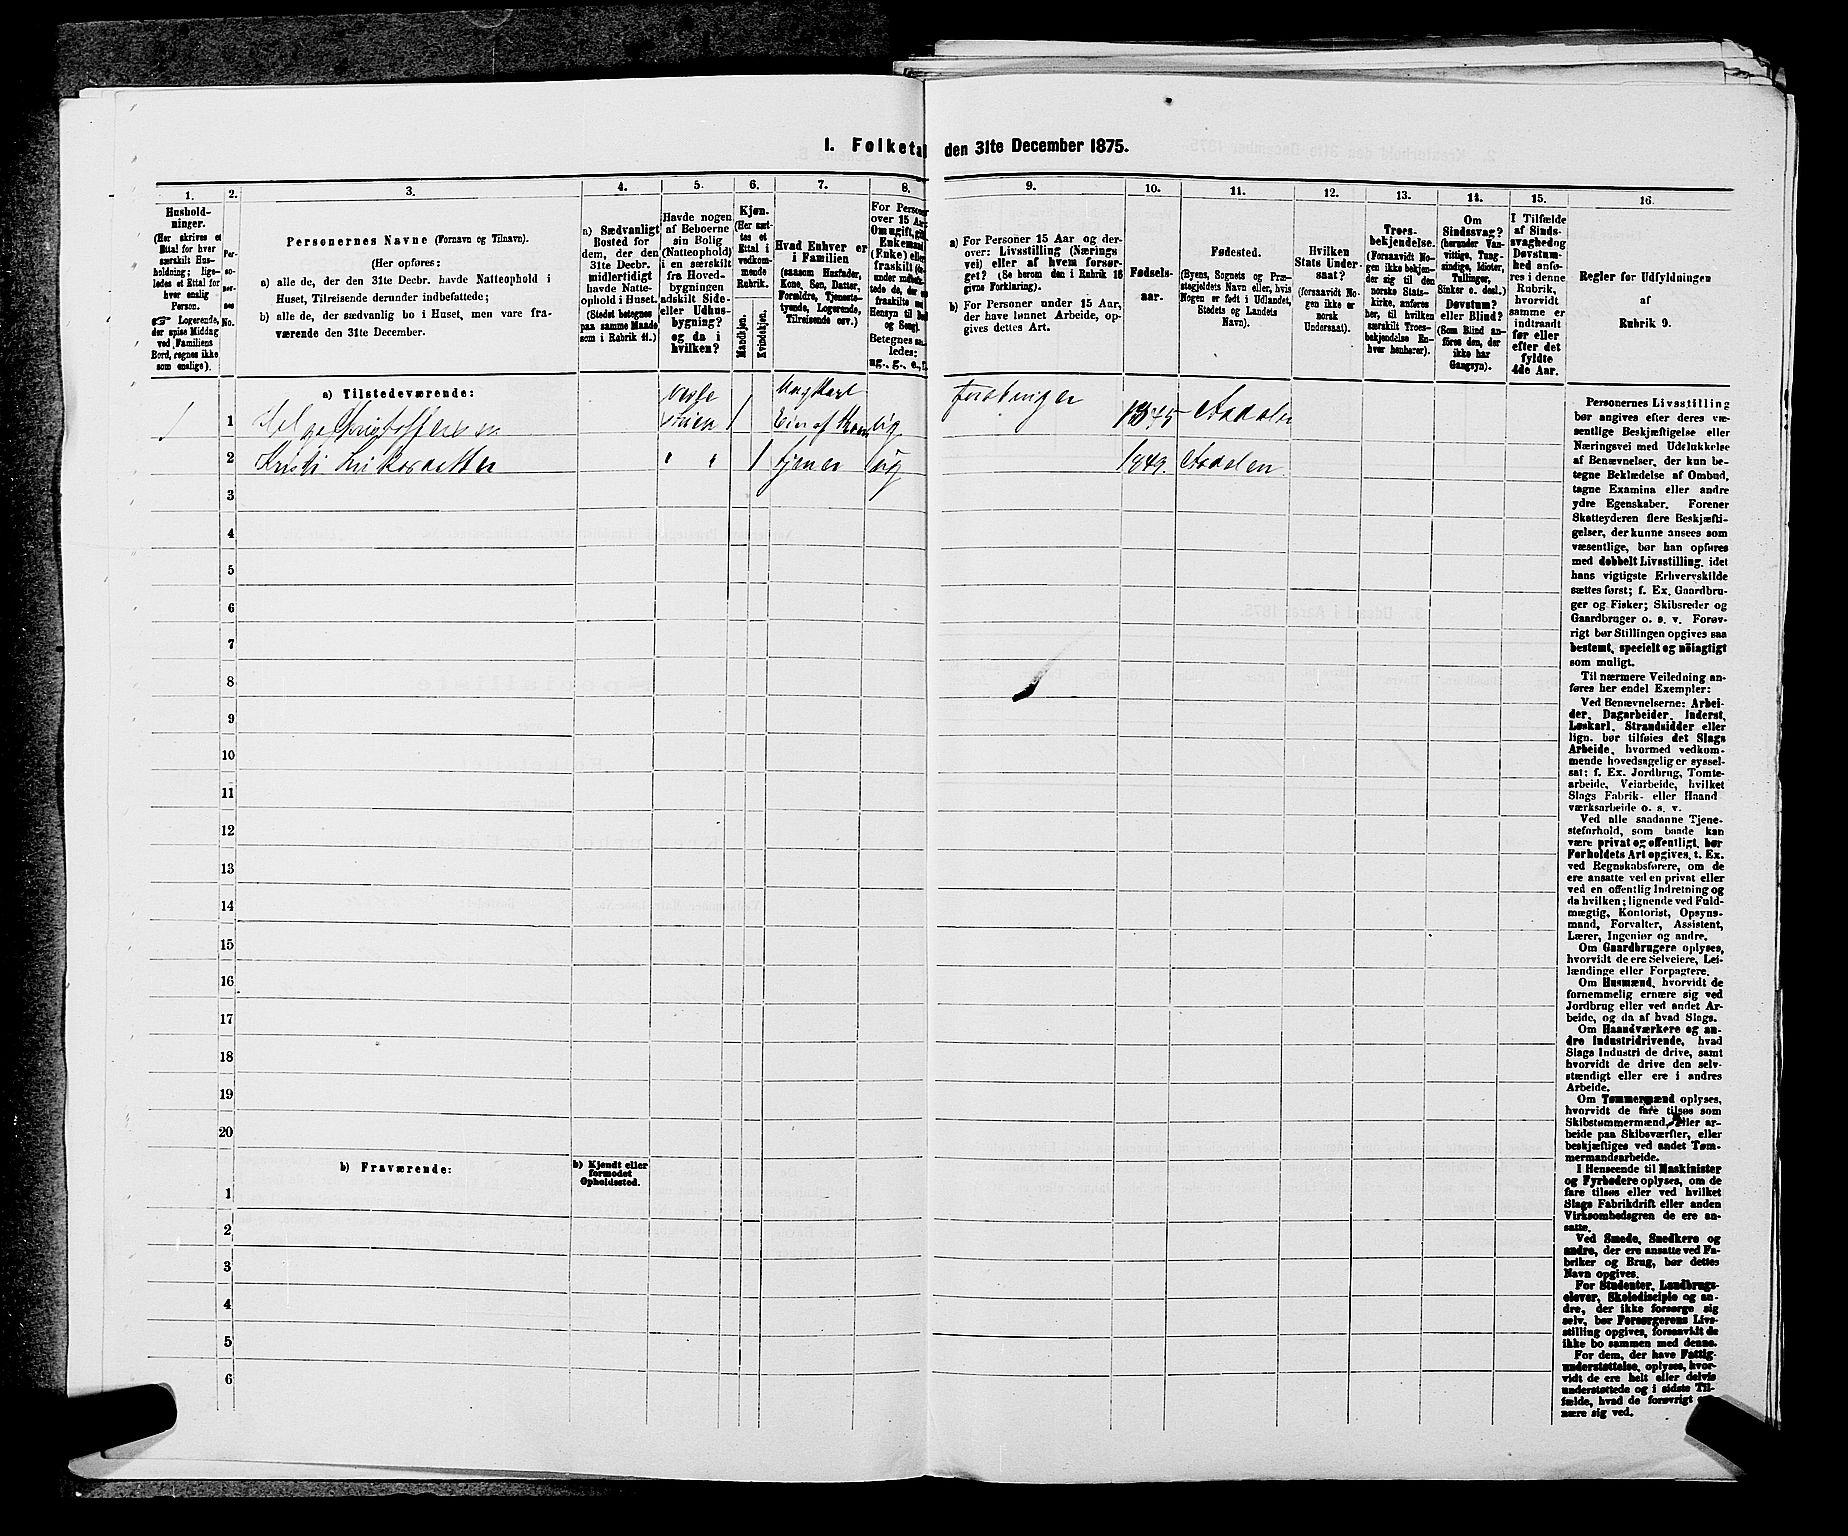 1. Folketal den 31te December 1875.
1. 2. 3. 4. 5. 6. 7. 8. 9. 10. 11. 12. 13. 14. 15. 16.
Hushold-
ninger.
(Her skrives et
Ettal for hver
særskilt Hus-
holdning; lige-
ledes et Ettal for
hver enslig
Person.
☞ Logerende,
der spise Middag
ved Familiens
Bord, regnes ikke
som enslige).
Per-
so-
ner-
nes
No.
Personernes Navne (Fornavn og Tilnavn).
(Her opføres:
a) alle de, der den 31te Decbr. havde Natteophold i
Huset, Tilreisende derunder indbefattede;
b) alle de, der sædvanlig bo i Huset, men vare fra-
værende den 31te December.
a) Sædvanligt
Bosted for
dem, der den
31te Decbr.
midlertidigt
havde Natte-
ophold i Huset.
(Stedet betegnes
paa samme Maade
som i Rubrik 11.)
Havde nogen
af Beboerne
sin Bolig
(Natteophold)
i en særskilt
fra Hoved-
bygningen
adskilt Side-
eller Udhus-
bygning?
og da i
hvilken?
Kjøn.
(Her sæt-
tes et
Ettal i
vedkom-
mende
Rubrik.
Mandkjøn.
Kvindekjøn.
Hvad Enhver er
i Familien
(saasom Husfader,
Kone, Søn, Datter,
Forældre, Tjeneste-
tyende, Logerende,
Tilreisende osv.)
For Personer
over 15 Aar:
Om ugift, gift,
Enkemand
(Enke) eller
fraskilt
Betegnes saa-
ledes:
ug., g., e., f.
a) For Personer 15 Aar og der-
over: Livsstilling (Nærings
vei) eller af hvem forsør-
get? (Se herom den i Rubrik 16
givne Forklaring).
b) For Personer under 15 Aar,
der have lønnet Arbeide, op-
gives dettes Art.
Fødsels-
aar.
Fødested.
(Byens, Sognets og Præ-
stegjeldets Navn eller, hvis
Nogen er født i Udlandet,
Stedets og Landets
Navn).
Hvilken
Stats Under-
saat?
(forsaavidt No-
gen ikke er
norsk
Undersaat).
Troes-
bekjendelse.
(Forsaavidt No-
gen ikke bekjen-
der sig til den
norske Stats-
kirke, anføres
her, til hvilken
særskilt Troes-
bekjendelse En-
hver henhører).
Om
Sindssvag?
(herunder Van-
vittige, Tung-
sindige, Idioter,
Tullinger,
Sinker o. desl.)
Døvstum?
eller Blind?
(Som Blind an-
føres den, der
ikke har
Gangsyn).
I Tilfælde
af Sinds-
svaghed og
Døvstum-
hed anfø-
res i denne
Rubrik,
hvorvidt
samme er
indtraadt
før eller
efter det
fyldte
4de Aar.
Regler for Udfyldningen
af
Rubrik 9.
a) Tilstedeværende:
1 1 Helge Christoffersen 1 ug 1845 Aadalen
2 Kristi " " 1 tjener ug 1849 Aadalen
3
4
5
6
7
8
9
10
11
12
13
14
15
16
17
18
19
20
b) Fraværende:
b) Kjendt eller
formodet
Opholdssted.
1
2
3
4
5
6
Personernes Livsstilling
bør angives efter deres væ-
sentlige Beskjæftigelse eller
Næringsvei med Udelukkelse
af Benævnelser, der kun be-
tegne Beklædelse af Ombud,
tagne Examina eller andre
ydre Egenskaber. Forener
Skatteyderen flere Beskjæfti-
gelser, der kunne ansees som
væsentlige, bør han opføres
med dobbelt Livsstilling, idet
hans vigtigste Erhvervskilde
sættes først; f. Ex. Gaardbru-
ger og Fisker; Skibsreder og
Gaardbruger o. s. v. Forøv-
rigt bør Stillingen opgives saa
bestemt, specielt og nöiagtigt
som muligt.
Til nærmere Veiledning an-
føres her endel Exempler:
Ved Benævnelserne: Arbei-
der, Dagarbeider, Inderst,
Løskarl, Strandsidder eller
lign. bør tilføies det Slags
Arbeide, hvormed vedkom-
mende hovedsagelig er syssel-
sat; f. Ex. Jordbrug, Tomte-
arbeide, Veiarbeide, hvilket
Slags Fabrik- eller Haand
værksarbeide o. s. v.
Ved alle saadanne Tjene-
steforhold, som baade kan
være privat og offentligt, bør
Forholdets Art opgives, t. Ex.
ved Regnskabsførere, om de
ere ansatte ved en privat eller
ved en offentlig Indretning og
da hvilken; lignende ved Fuld-
mægtig, Kontorist, Opsyns-
mand, Forvalter, Assistent,
Lærer, Ingeniør og andre.
Om Gaardbrugere oplyses,
hvorvidt de ere Selveiere, Lei-
lændinge eller Forpagtere.
Om Husmænd, hvorvidt de
fornemmelig ernære sig ved
Jordbrug eller ved andet Ar-
beide, og da af hvad Slags.
Om Haandværkere og an-
dre Industridrivende, hvad
Slags Industri de drive, samt
hvorvidt de drive den selv-
stændigt eller ere i andres
Arbeide.
Om Tømmermænd oplyses,
hvorvidt de fare tilsøs som
Skibstømmermænd, eller ar-
beide paa Skibsværfter, eller
beskjæftiges ved andet Tøm-
mermandsarbeide.
I Henseende til Maskinister
og Fyrbødere oplyses, om de
fare tilsøs eller ved hvilket
Slags Fabrikdrift eller anden
Virksombedsgren de ere an-
satte.
Ved Smede, Snedkere og
andre, der ere ansatte ved Fa-
briker og Brug, bør dettes
Navn opgives.
For Studenter, Landbrugs-
elever, Skoledisciple og an-
dre, der ikke forsørge sig
selv, bør Forsørgerens Livs-
stilling opgives, forsaavidt de
ikke bo sammen med denne.
For dem, der have Fattig-
understøttelse, oplyses, hvor-
vidt de ere helt eller delvis
understøttede og i sidste Til-
fælde, hvad de forøvrigt
nære sig ved.